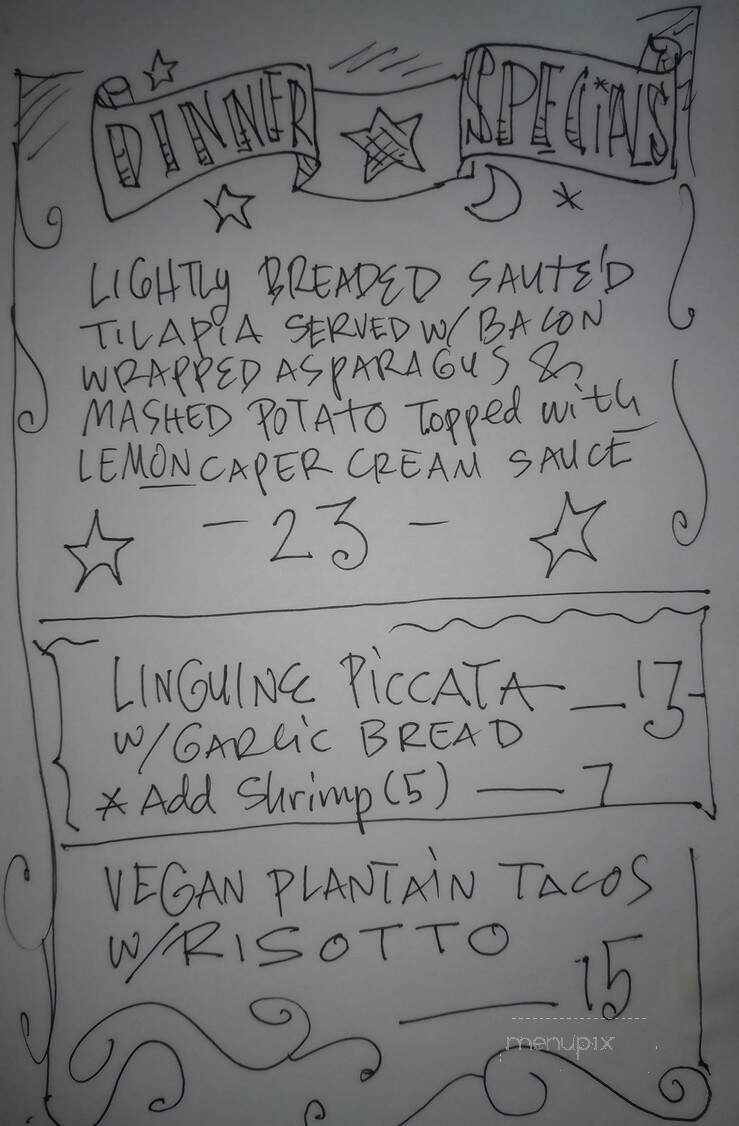 DINNER SPECiALS
LIGHTLy BREADED SAUTE'D
TILAPIA SERVED W/ BACON
WRAPPED ASPARAGUS &
MASHED POTATO Topped with
LEMON CAPER CREAM SAUCE
- 23 -
LINGUINE PiCCATA — 13
W/ GARLiC BREAD
* Add Shrimp (5) — 7
VEGAN PLANTAiN TACOS
W/ RISOTTO
— 15
menupix